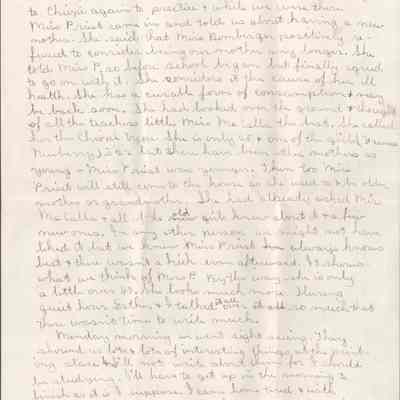 to Chiopi again to practice & while we were there
Miss Priest came in and told us about having a new
mother. She said that Miss Bomberger positively re-
fused to consider being our mother any longer. She
told Miss P. so before school began but finally agreed
to go on with it. She considers it the cause of her ill
health. She has a curable form of consumption & may
be back soon. She had looked over the ground & thought
of all the teachers little Miss the best. She called
her the Chiopi Bym. She is only 25 & one of the girls
Newberry is 25 but there have been other mothers as
young - Miss Priest was younger. Then too Miss
Priest will still come to the house as she used to to be older
mother or grandmother. She had already asked Miss
& all the old girls knew about it & a few
new ones. In any other person we might not have
liked it but we knew Miss Priest always knows
best & there wasn't a kick even afterward. It shows
what we think of Miss P. By the way she is only
a little over 40. She looks much more. During
quiet hour Esther & I talked it all over so much that
there wasn't time to write much.
Monday morning we went sight seeing. They
showed us lots & lots of interesting things at the print-
ing store & I'll not write about them for I should
be studying. I'll have to get up in the morning to
finish as it is I suppose. I came home tired & with